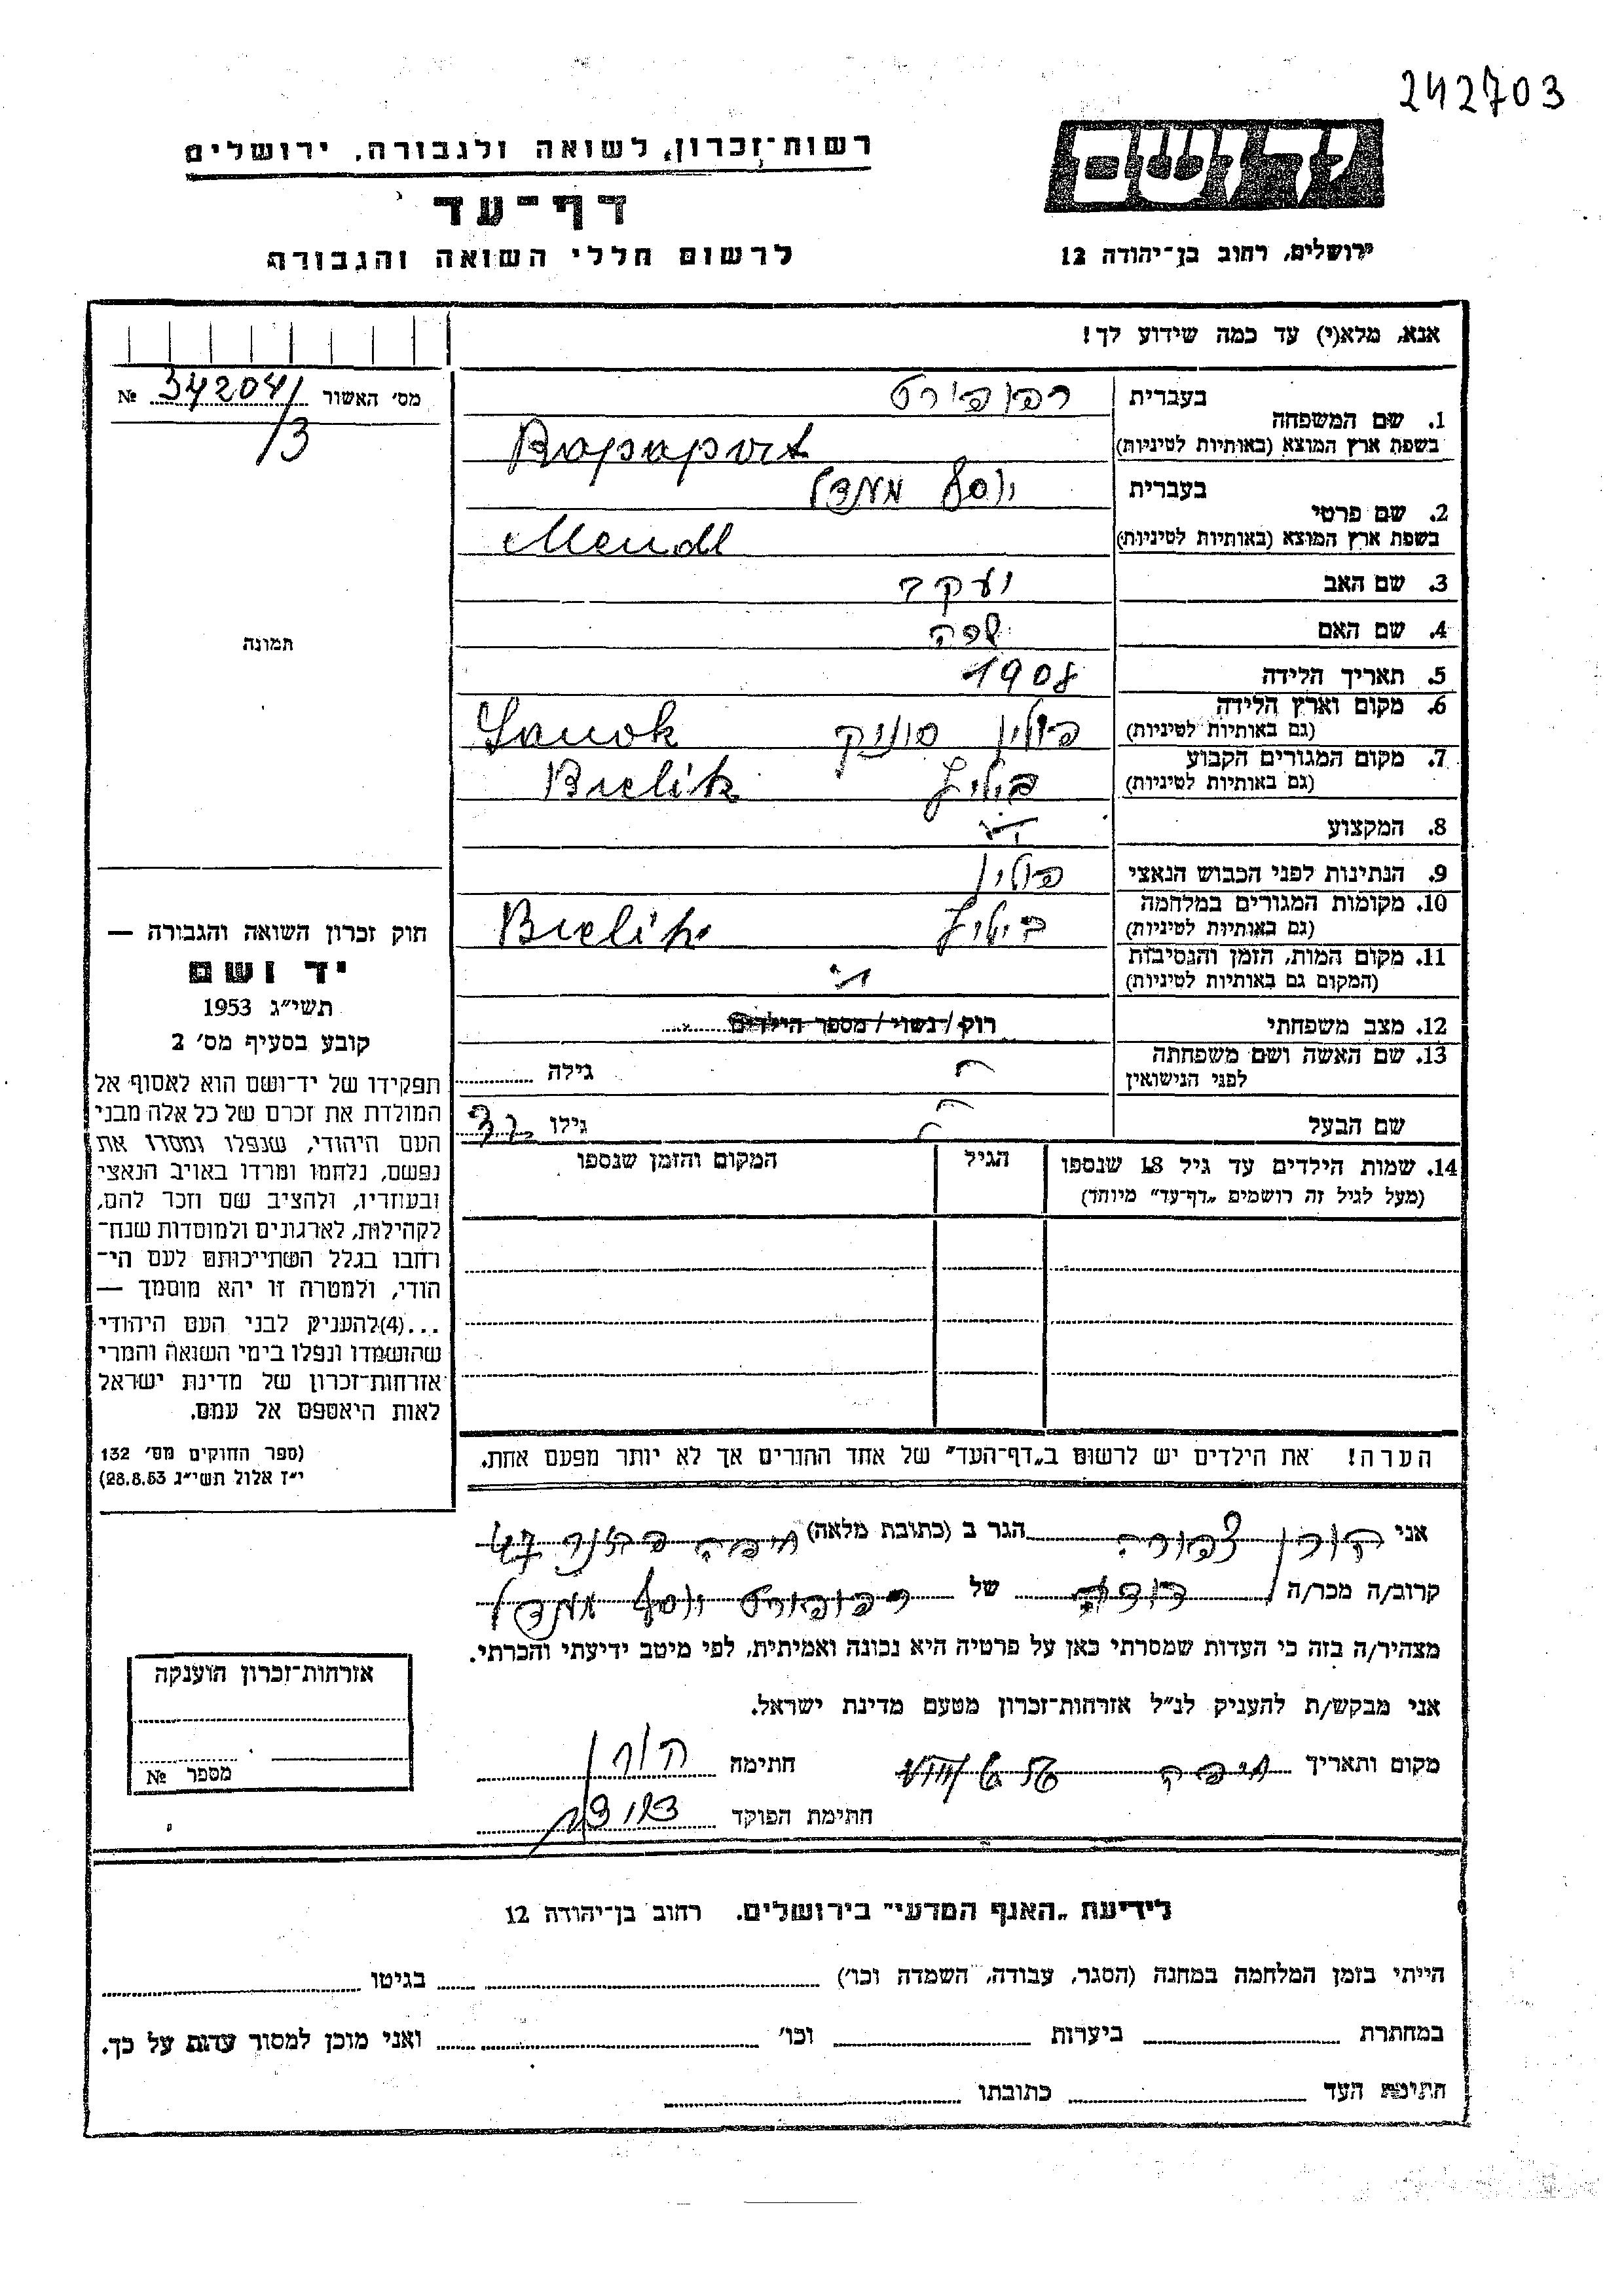 242703
יד ושם
רשות־זכרון לשואה ולגבורה, ירושלים
דף־עד
ירושלים, רחוב בן־יהודה 12
לרשום חללי השואה והגבורה
אנא, מלא(י) עד כמה שידוע לך!
מס׳ האשור 342041 №
/3
1. שם המשפחה
בעברית רפופורט
בשפת ארץ המוצא (באותיות לטיניות) Rapaport
2. שם פרטי
בעברית יוסף מנדל
בשפת ארץ המוצא (באותיות לטיניות) Mendl
3. שם האב יעקב
4. שם האם
5. תאריך הלידה 1908
6. מקום וארץ הלידה
(גם באותיות לטיניות) פולין סנוק Sanok
7. מקום המגורים הקבוע
(גם באותיות לטיניות) ביליץ Bielitz
8. המקצוע
9. הנתינות לפני הכבוש הנאצי פולין
10. מקומות המגורים במלחמה
(גם באותיות לטיניות) ביליץ Bielitz
11. מקום המות, הזמן והנסיבות
(המקום גם באותיות לטיניות)
12. מצב משפחתי רוק / נשוי / מספר הילדים
13. שם האשה ושם משפחתה
לפני הנישואין גילה
שם הבעל גילו 32
14. שמות הילדים עד גיל 18 שנספו
(מעל לגיל זה רושמים „דף־עד״ מיוחד)
הגיל
המקום והזמן שנספו
הערה! את הילדים יש לרשום ב„דף־העד״ של אחד ההורים אך לא יותר מפעם אחת.
תמונה
חוק זכרון השואה והגבורה —
יד ושם
תשי״ג 1953
קובע בסעיף מס׳ 2
תפקידו של יד־ושם הוא לאסוף אל
המולדת את זכרם של כל אלה מבני
העם היהודי, שנפלו ומסרו את
נפשם, נלחמו ומרדו באויב הנאצי
ובעוזריו, ולהציב שם וזכר להם,
לקהילות, לארגונים ולמוסדות שנח־
רחבו בגלל השתייכותם לעם הי־
הודי, ולמטרה זו יהא מוסמך —
...(4)להעניק לבני העם היהודי
שהושמדו ונפלו בימי השואה והמרי
אזרחות־זכרון של מדינת ישראל
לאות היאספם אל עמם.
(ספר החוקים מס׳ 132
י״ז אלול תשי״ג 28.8.53)
אני הורן צפורה הגר ב (כתובת מלאה) חיפה
קרוב/ה מכר/ה דודה של רפופורט יוסף מנדל
מצהיר/ה בזה כי העדות שמסרתי כאן על פרטיה היא נכונה ואמיתית, לפי מיטב ידיעתי והכרתי.
אני מבקש/ת להעניק לנ״ל אזרחות־זכרון מטעם מדינת ישראל.
מקום ותאריך חיפה חתימה הורן
חתימת הפוקד
אזרחות־זכרון הוענקה
מספר №
לידיעת „האגף המדעי״ בירושלים, רחוב בן־יהודה 12
הייתי בזמן המלחמה במחנה (הסגר, עבודה, השמדה וכו׳) בגיטו
במחתרת ביערות וכו׳ ואני מוכן למסור עדות על כך.
חתימת העד כתובתו